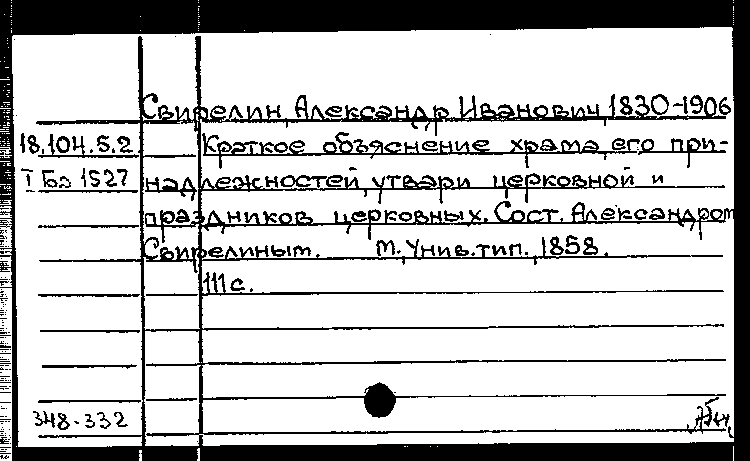 Свирелин, Александр Иванович, 1830-1906
18.104.5.2 Краткое объяснение храма, его при-
I Бэ 1527 надлежностей, утвари церковной и
праздников церковных. Сост. Александром
Свирелиным. М., Унив. тип., 1858.
111 с.
348-332